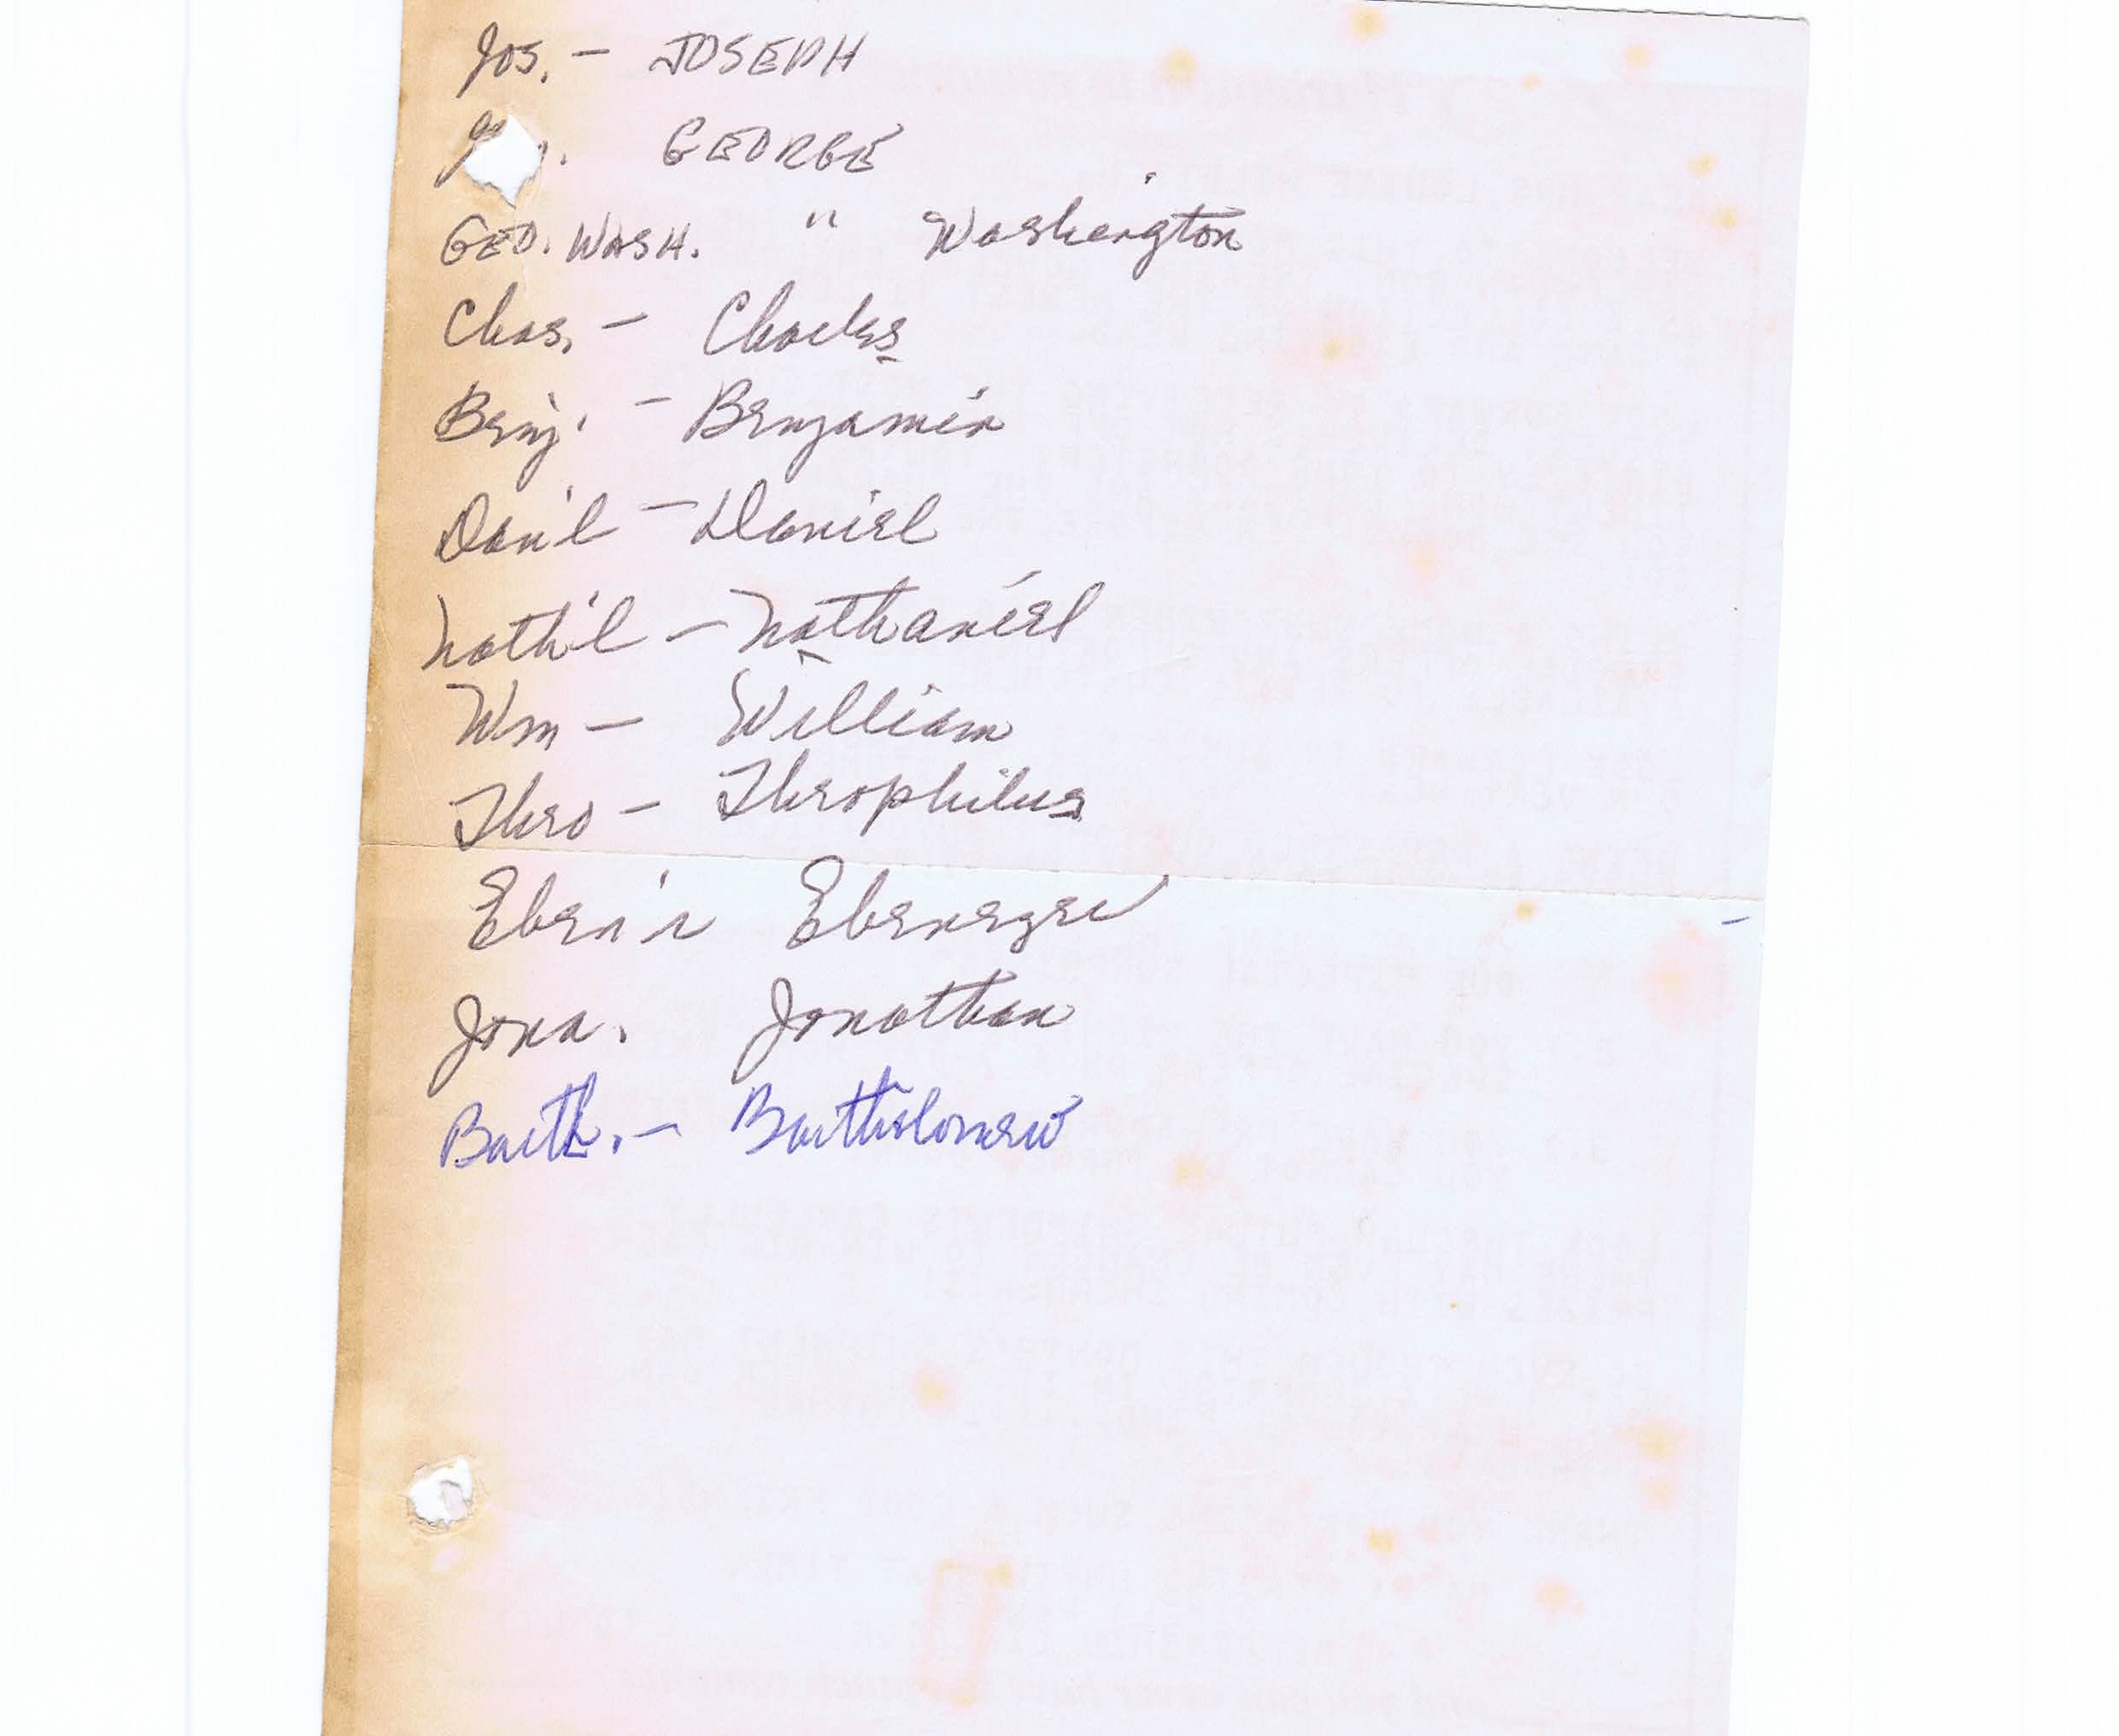 Jos. — JOSEPH
GEORGE
GEO. WASH. " Washington
Chas. — Charles
Benj. — Benjamin
Dan'l — Daniel
Nath'l — Nathaniel
Wm — William
Theo — Theophilus
Eben'r Ebenezer
Jona. Jonathan
Barth. — Bartholomew